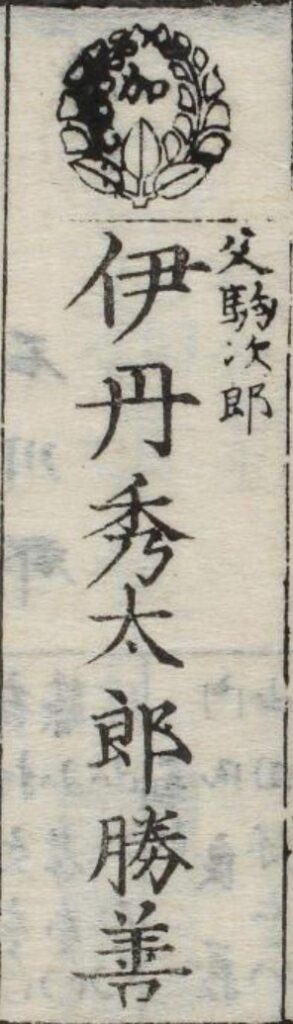 加
父駒次郎
伊丹秀太郎勝善